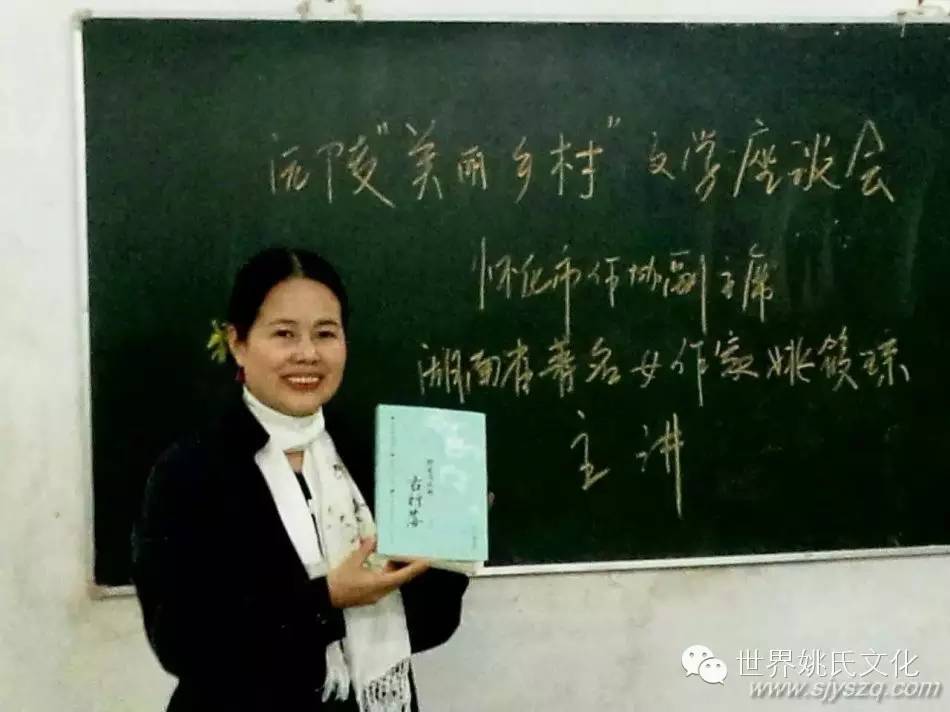 沅陵"美丽乡村"文学座谈会
怀化市作协副主席
湖南省著名女作家姚筱琼
主讲
古村落
世界姚氏文化
www.sjyszq.com